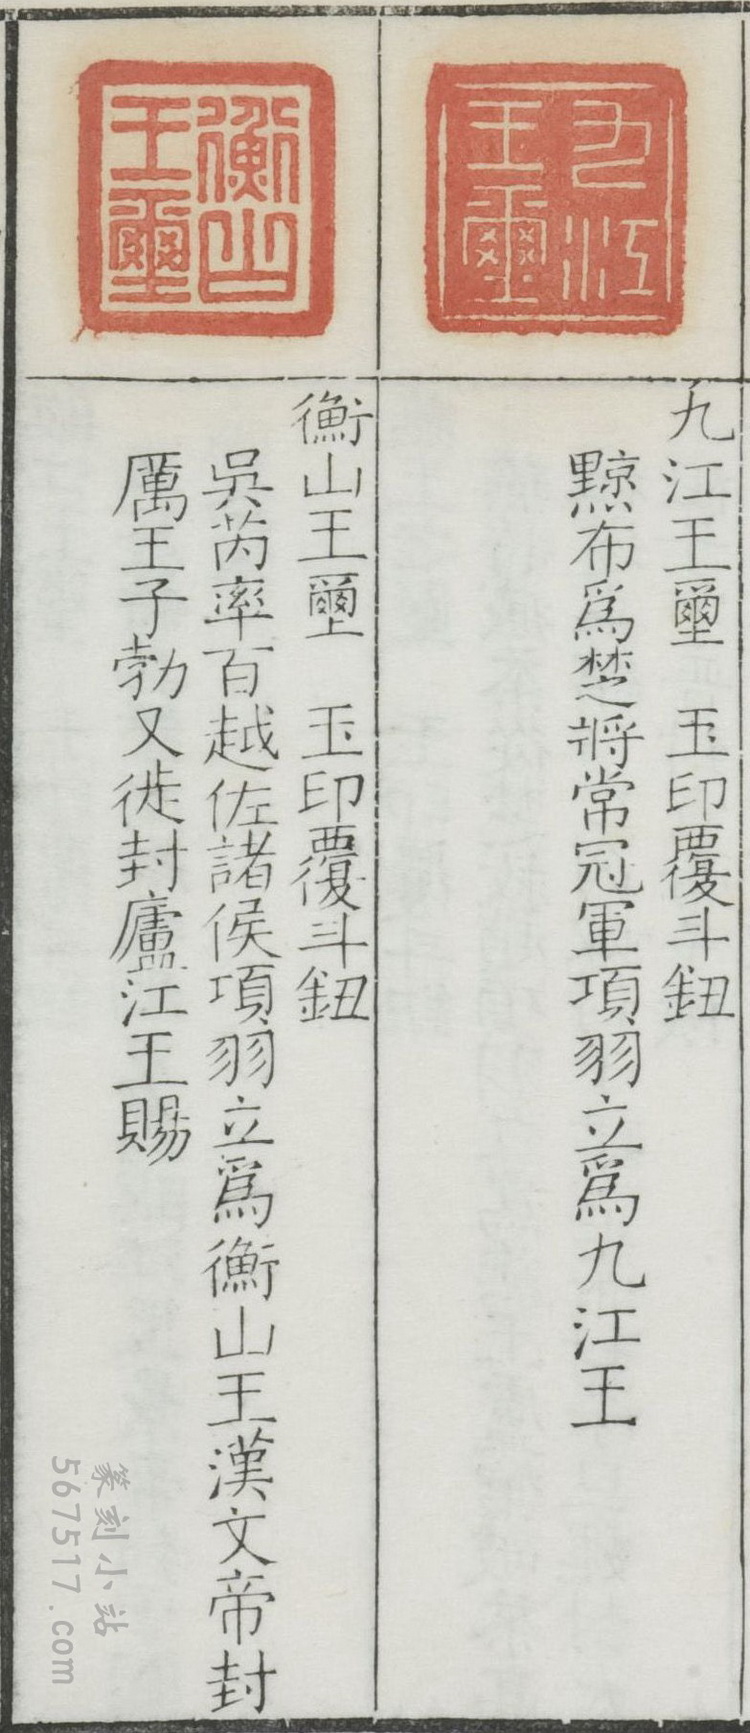 九江王璽
九江王璽　玉印覆斗鈕
黥布爲楚將常冠軍項羽立爲九江王
衡山王璽
衡山王璽　玉印覆斗鈕
吳芮率百越佐諸侯項羽立爲衡山王漢文帝封
厲王子勃又徙封廬江王賜
篆刻小站
567517.com